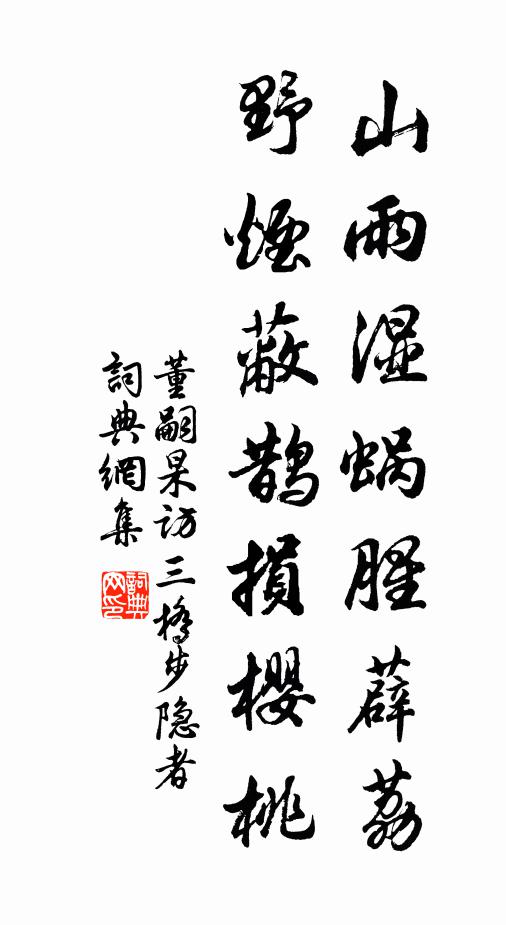 山雨湿蜗腥薜荔
野煙蔽鹊損櫻桃
董嗣杲访三橋步隐者
詞典網集
詞典网印